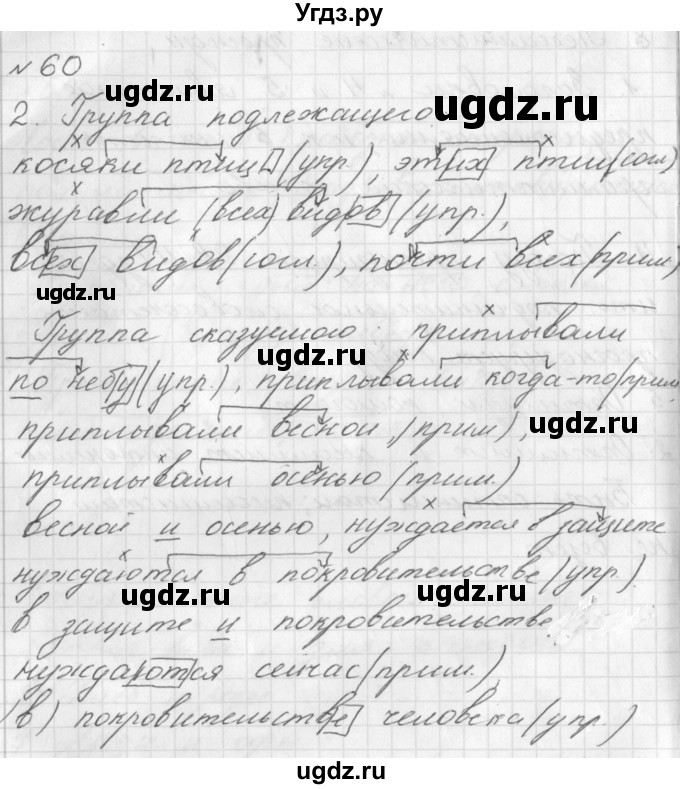 Угдз.ру
№ 60
2. Группа подлежащего:
косяки птиц (упр.), этих птиц (согл)
журавли (всех) видов (упр.),
всех видов (согл.), почти всех (прим)
Группа сказуемого: приплывали
по небу (упр.), приплывали когда-то (прим
приплывали весной, (прим),
приплывали осенью (прим.)
весной и осенью, нуждается в защите
нуждаются в покровительстве (упр.)
в защите и покровительстве
нуждаются сейчас (прим.),
(в) покровительстве человека (упр.)
ugdz.ru
ugdz.ru
ugdz.ru
ugdz.ru
ugdz.ru
ugdz.ru
ugdz.ru
ugdz.ru
ugdz.ru
ugdz.ru
ugdz.ru